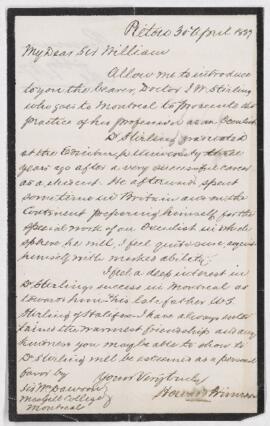 Pictou 30th April 1889
My Dear Sir William
Allow me to introduce
to you the bearer, Doctor J W Stirling
who goes to Montreal to prosecute the
practice of his profession as an Oculist
Dr Stirling graduated
at the Edinburgh University three
years ago after a very successful career
as a student. He afterward spent
some time in Britain and on the
Continent preparing himself for the
special work of an Oculist in which
sphere he will, I feel quite sure, acquit
himself with marked ability.
I feel a deep interest in
Dr Stirlings success in Montreal as
towards him & his late father W S
Stirling of Halifax I have always enter
tained the warmest friendship and any
kindness you may be able to show to
Dr Stirling will be esteemed as a personal
favor by Yours very truly
Sir Wm Dawson Howard Primrose
McGill College
Montreal